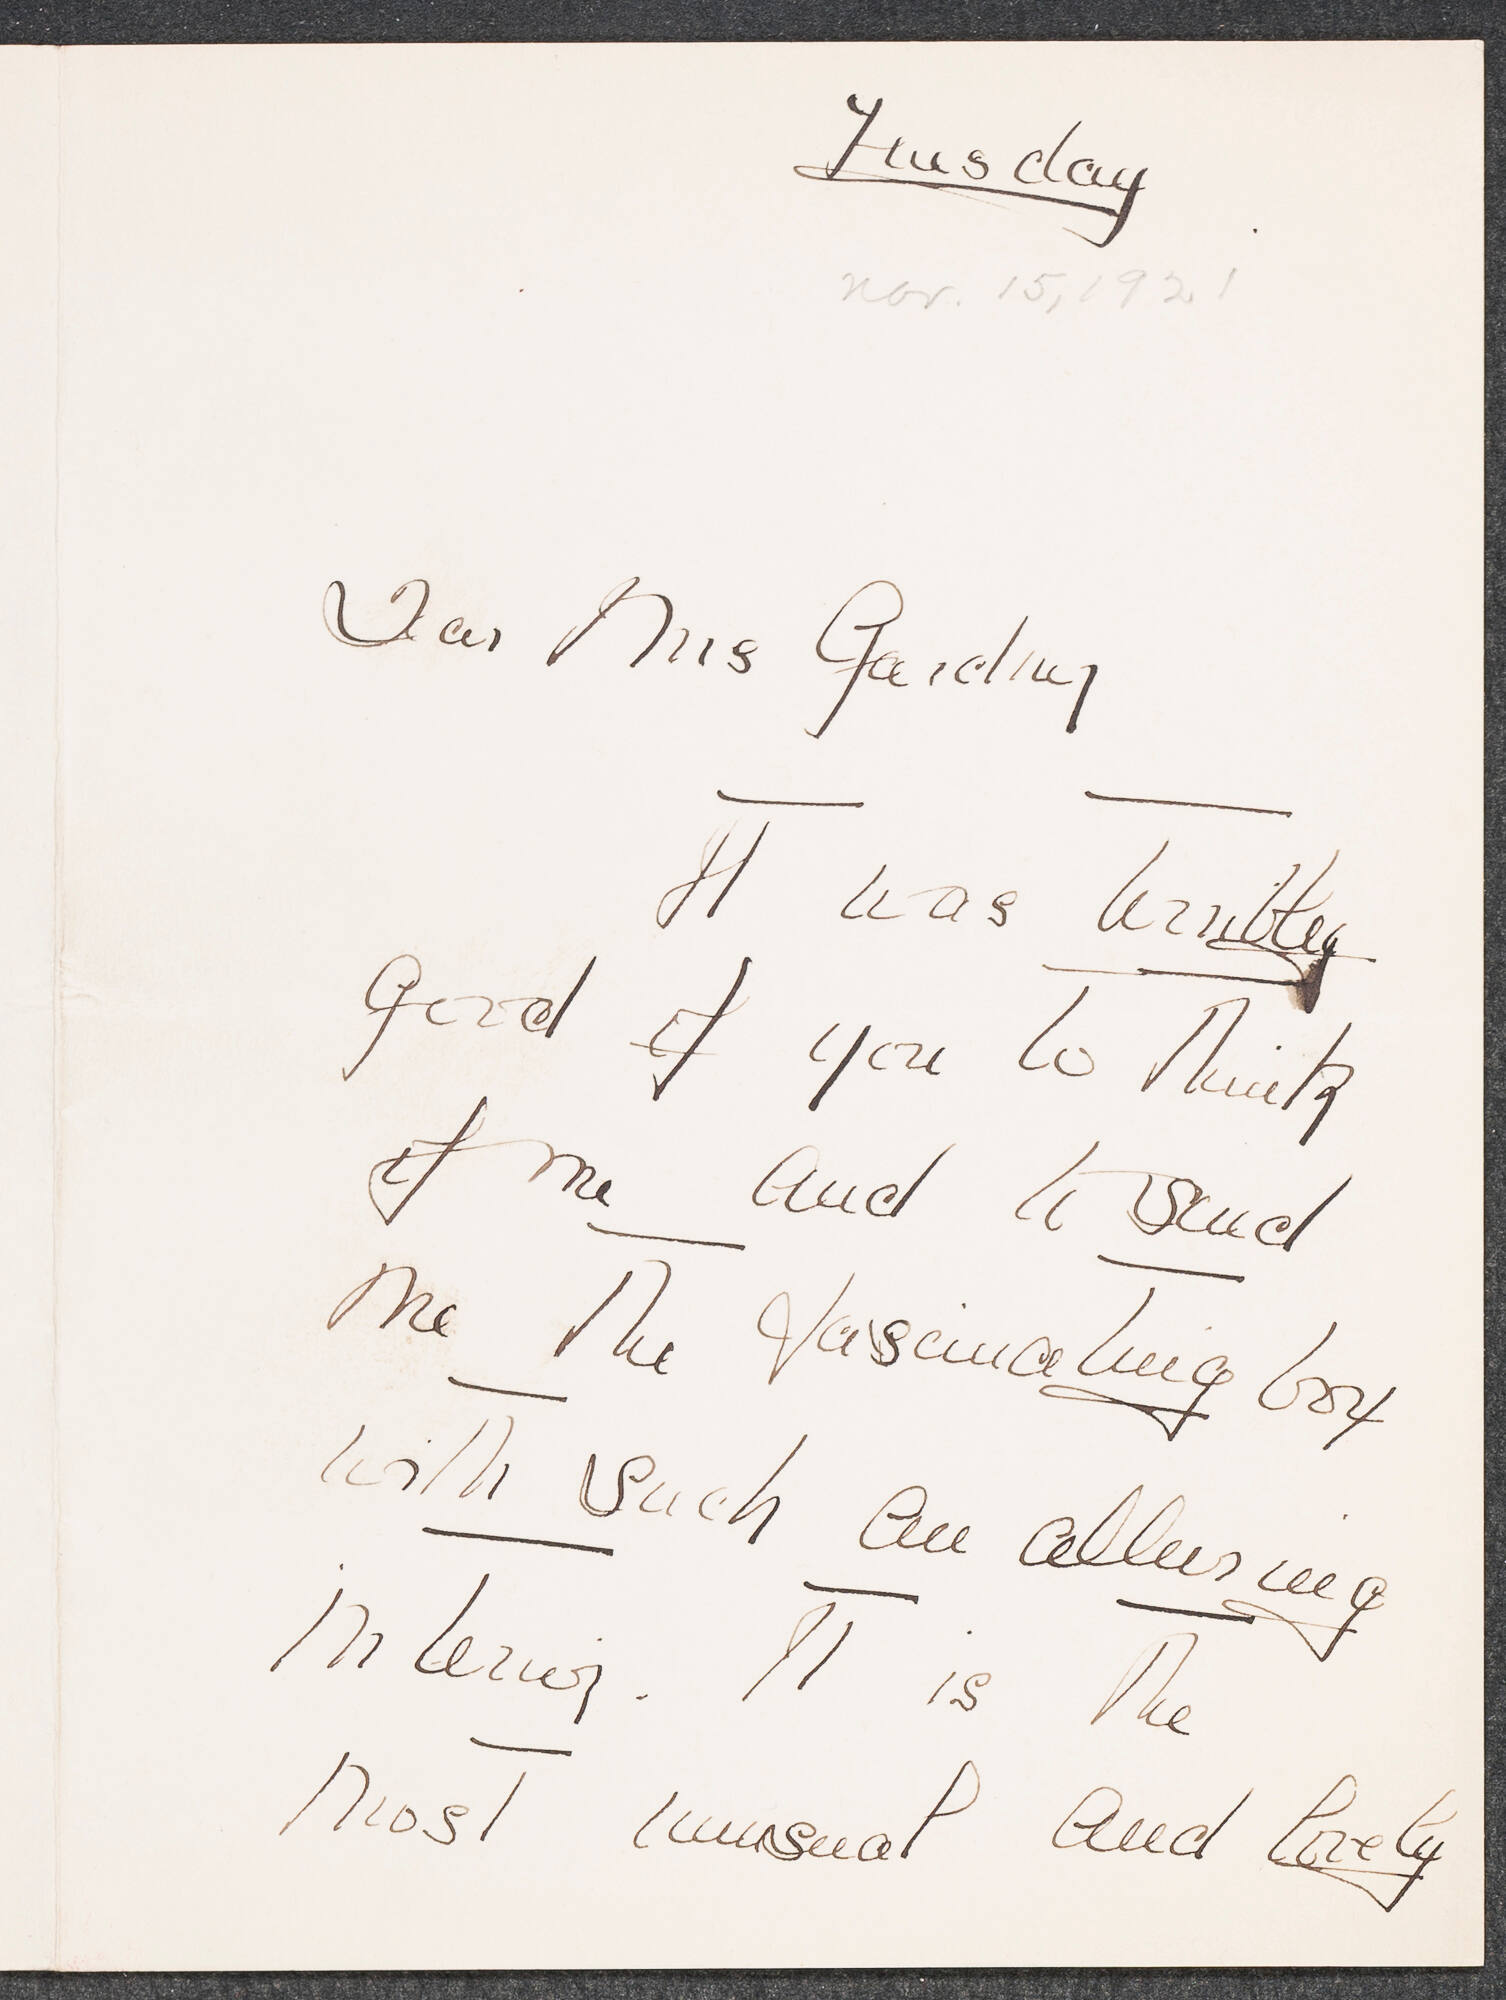 Tuesday
Nov. 15, 1921
Dear Mrs Gardner
It was terribly
good of you to think
of me and to send
me the fascinating box
with such an alluring
interior. It is the
most unusual and lovely